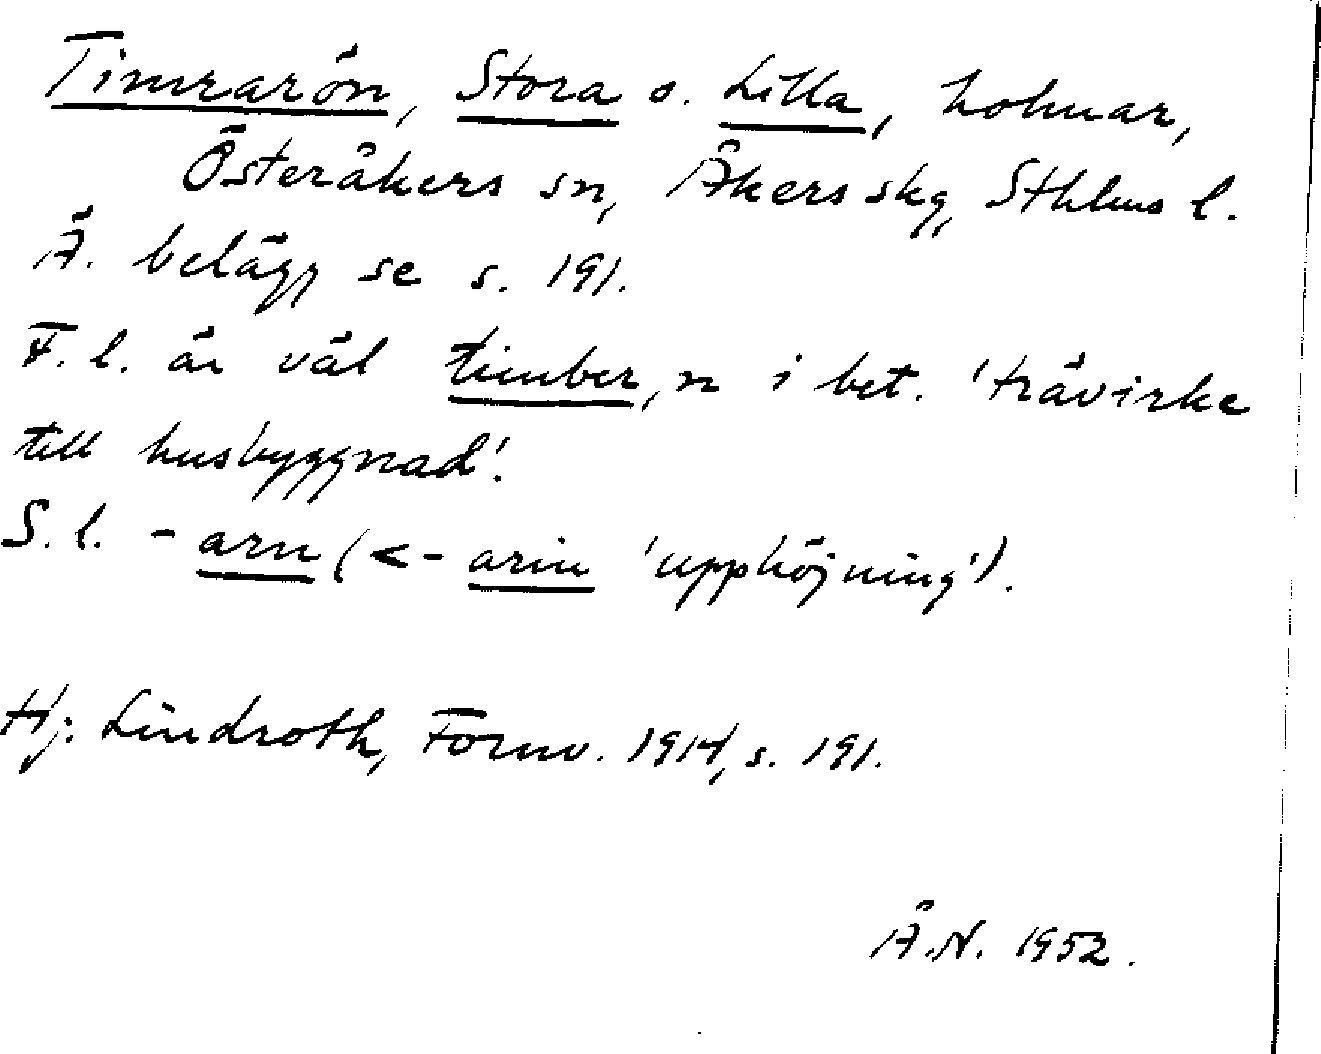 Timrarön, Stora o. Lilla, holmar,
Österåkers sn, Åkers skg, Sthlms l.
Ä. belägg se s. 191.
F. l. är väl timber, n i bet. 'trävirke
till husbyggnad'.
S. l. -arn (<-arin 'upphöjning').
Hj. Lindroth, Fornv. 1914, s. 191.
Å.N. 1952.